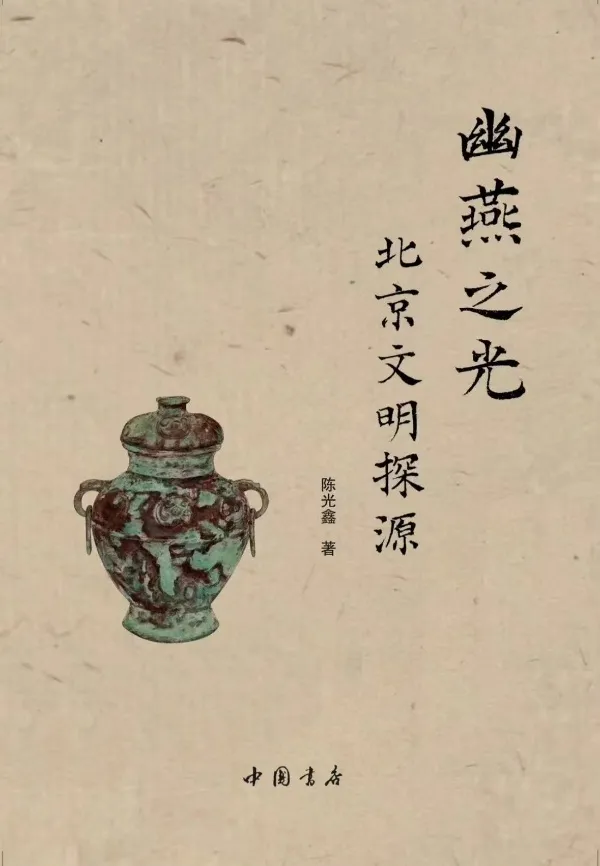 幽燕之光
北京文明探源
陈光鑫 著
中国书店